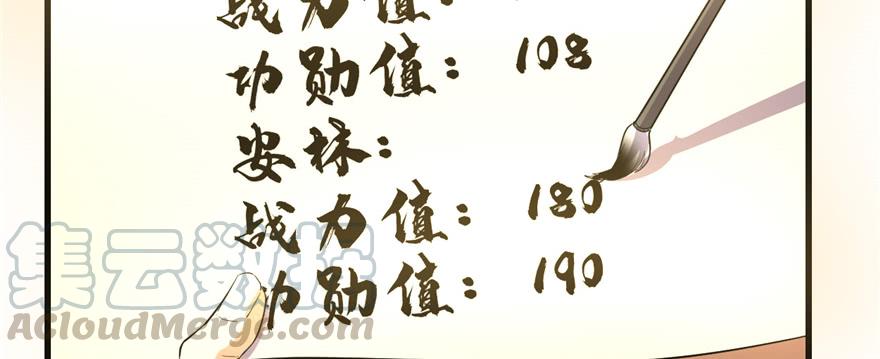 战力值:
功勋值: 108
安林:
战力值: 180
功勋值: 190
集云数据
ACloudMerge.com